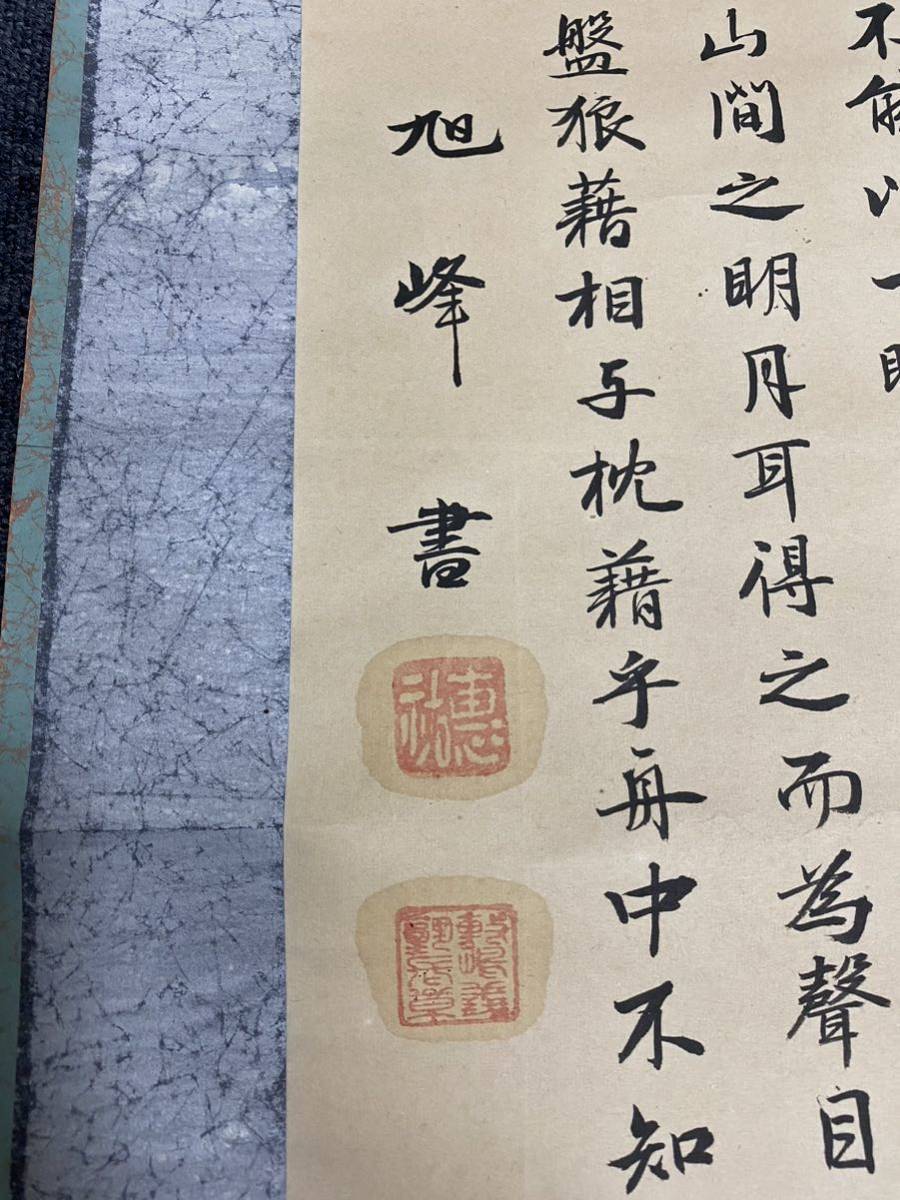 不能以一
山間之明月耳得之而為聲目
盤狼藉相与枕藉乎舟中不知
旭峰書